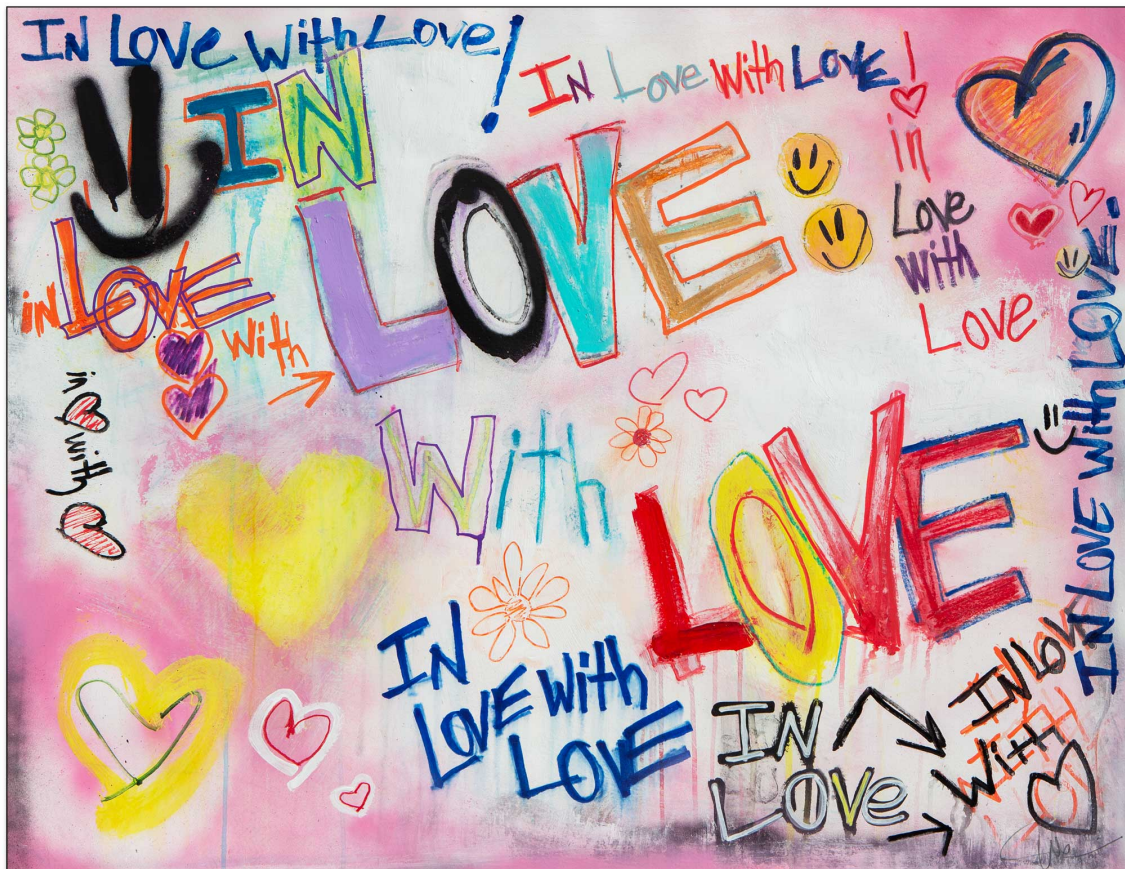 IN LOVE WITH LOVE!
IN LOVE WITH LOVE!
IN
LOVE
With
LOVE
in
Love
with
Love
in LOVE
with
in ♥ with ♥
IN LOVE with LOVE.
IN
LOVE with
LOVE
IN
LOVe
IN LOV
With